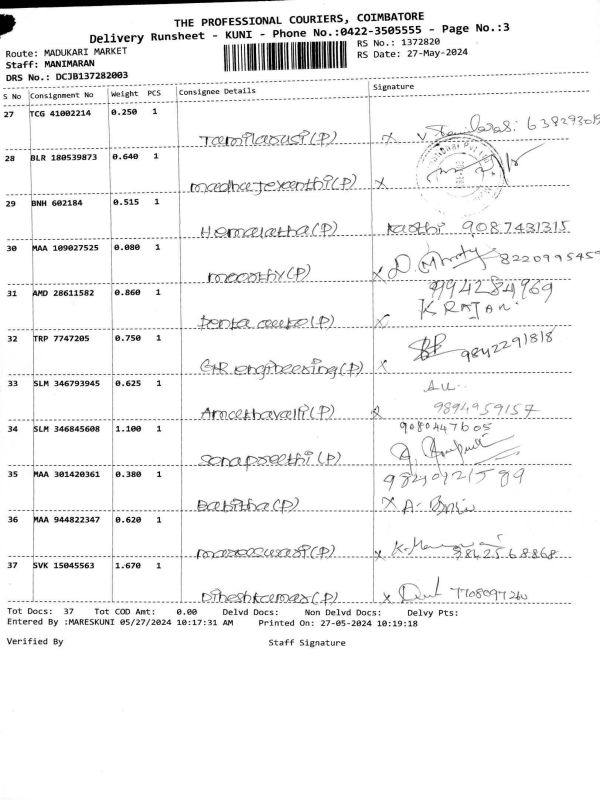 THE PROFESSIONAL COURIERS, COIMBATORE
Delivery Runsheet - KUNI - Phone No.:0422-3505555 - Page No.:3
Route: MADUKARI MARKET
RS No.: 1372820
Staff: MANIMARAN
RS Date: 27-May-2024
DRS No.: DCJB137282003
S No Consignment No Weight PCS Consignee Details Signature
27 TCG 41002214 0.250 1
Tamilarusi(P) x 6382930159
28 BLR 180539873 0.640 1
madhu jexanthi(P) x
29 BNH 602184 0.515 1
Hemalatha(P) Karthi 9087431315
30 MAA 109027525 0.080 1
moorthy(P) x D. 8220995459
31 AMD 28611582 0.860 1
9942284969
K RAJAN
(P)
32 TRP 7747205 0.750 1
GR engineering(P) x 9842291818
33 SLM 346793945 0.625 1
Amirthavalli(P) x 9894959157
34 SLM 346845608 1.100 1
9080447605
sonapreethi(P)
35 MAA 301420361 0.380 1
Babitha(P) x A.
36 MAA 944822347 0.620 1
(P) x 9842568868
37 SVK 15045563 1.670 1
Dineshkumar(P) x 7708097260
Tot Docs: 37 Tot COD Amt: 0.00 Delvd Docs: Non Delvd Docs: Delvy Pts:
Entered By :MARESKUNI 05/27/2024 10:17:31 AM Printed On: 27-05-2024 10:19:18
Verified By Staff Signature